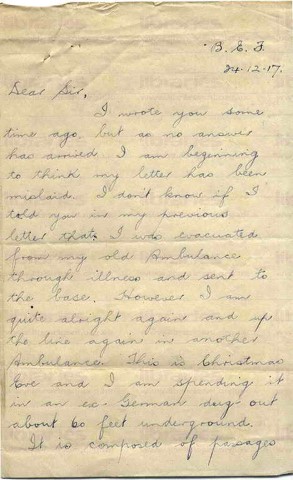 B. E. F.
24-12-17.
Dear Sir,
I wrote you some
time ago, but as no answer
has arrived I am beginning
to think my letter has been
mislaid. I don't know if I
told you in my previous
letter that I was evacuated
from my old Ambulance
through illness and sent to
the base. However I am
quite alright again and up
the line again in another
Ambulance. This is Christmas
Eve and I am spending it
in an ex-German dug out
about 60 feet underground.
It is composed of passages